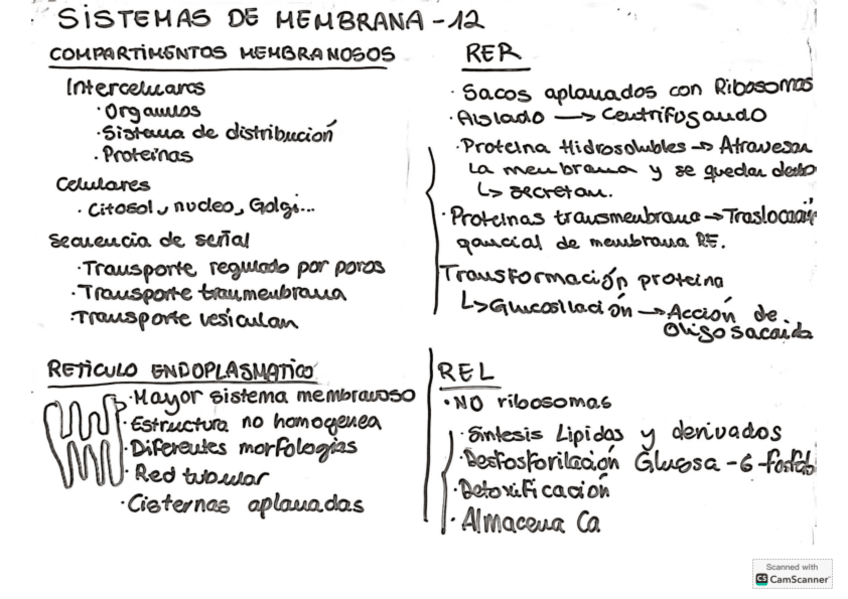 SISTEMAS DE MEMBRANA - 12
COMPARTIMENTOS MEMBRANOSOS
Intercelulares
· Organulos
· Sistema de distribución
· Proteinas
Celulares
· Citosol, nucleo, Golgi...
Secuencia de señal
· Transporte regulado por poros
· Transporte traumenbrana
· Transporte vesiculan
RETICULO ENDOPLASMATICO
· Mayor sistema membranoso
· Estructura no homogenea
· Diferentes morfologías
· Red tubular
· Cisternas aplanadas
RER
· Sacos aplanados con Ribosomas
· Aislado → Centrifugando
· Proteina Hidrosolubles → Atraviesan
La membrana y se quedan dentro
↳ secretan.
· Proteinas transmenbrana → Traslocación
parcial de membrana RE.
Transformación proteina
↳ Glucosilación → Acción de
oligosacarida
REL
· NO ribosomas
· Síntesis Lipidos y derivados
· Desfosforilación Glucosa - 6 - fosfato
· Detoxificación
· Almacena Ca
Scanned with
CS CamScanner